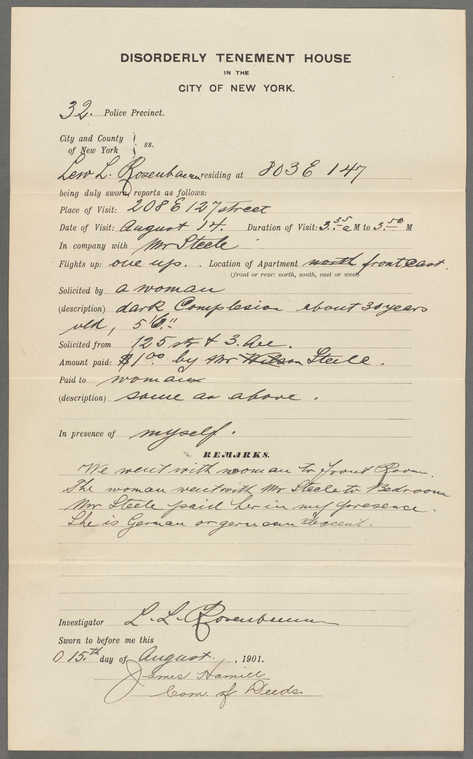 DISORDERLY TENEMENT HOUSE
IN THE
CITY OF NEW YORK.
32. Police Precinct.
City and County
of New York } ss.
Lew L. Rosenbaum residing at 803 E 147
being duly sworn, reports as follows:
Place of Visit: 208 E 127 street
Date of Visit: August 14. Duration of Visit: 3.35 a M to 3.50 M
In company with Mr Steele
Flights up: one up. Location of Apartment north front east.
(front or rear: north, south, east or west)
Solicited by a woman
(description) dark Complesion about 30 years
old, 5'6"
Solicited from 125 str & 3. Ave.
Amount paid: $1.00 by Mr Wilson Steele.
Paid to woman
(description) same as above.
In presence of myself.
REMARKS.
We went with woman to front Room.
The woman went with Mr Steele to Bedroom
Mr Steele paid her in my presence.
She is German or german descent.
Investigator L. L. Rosenbaum
Sworn to before me this
15th day of August, 1901.
James Hamill
Com. of Deeds.